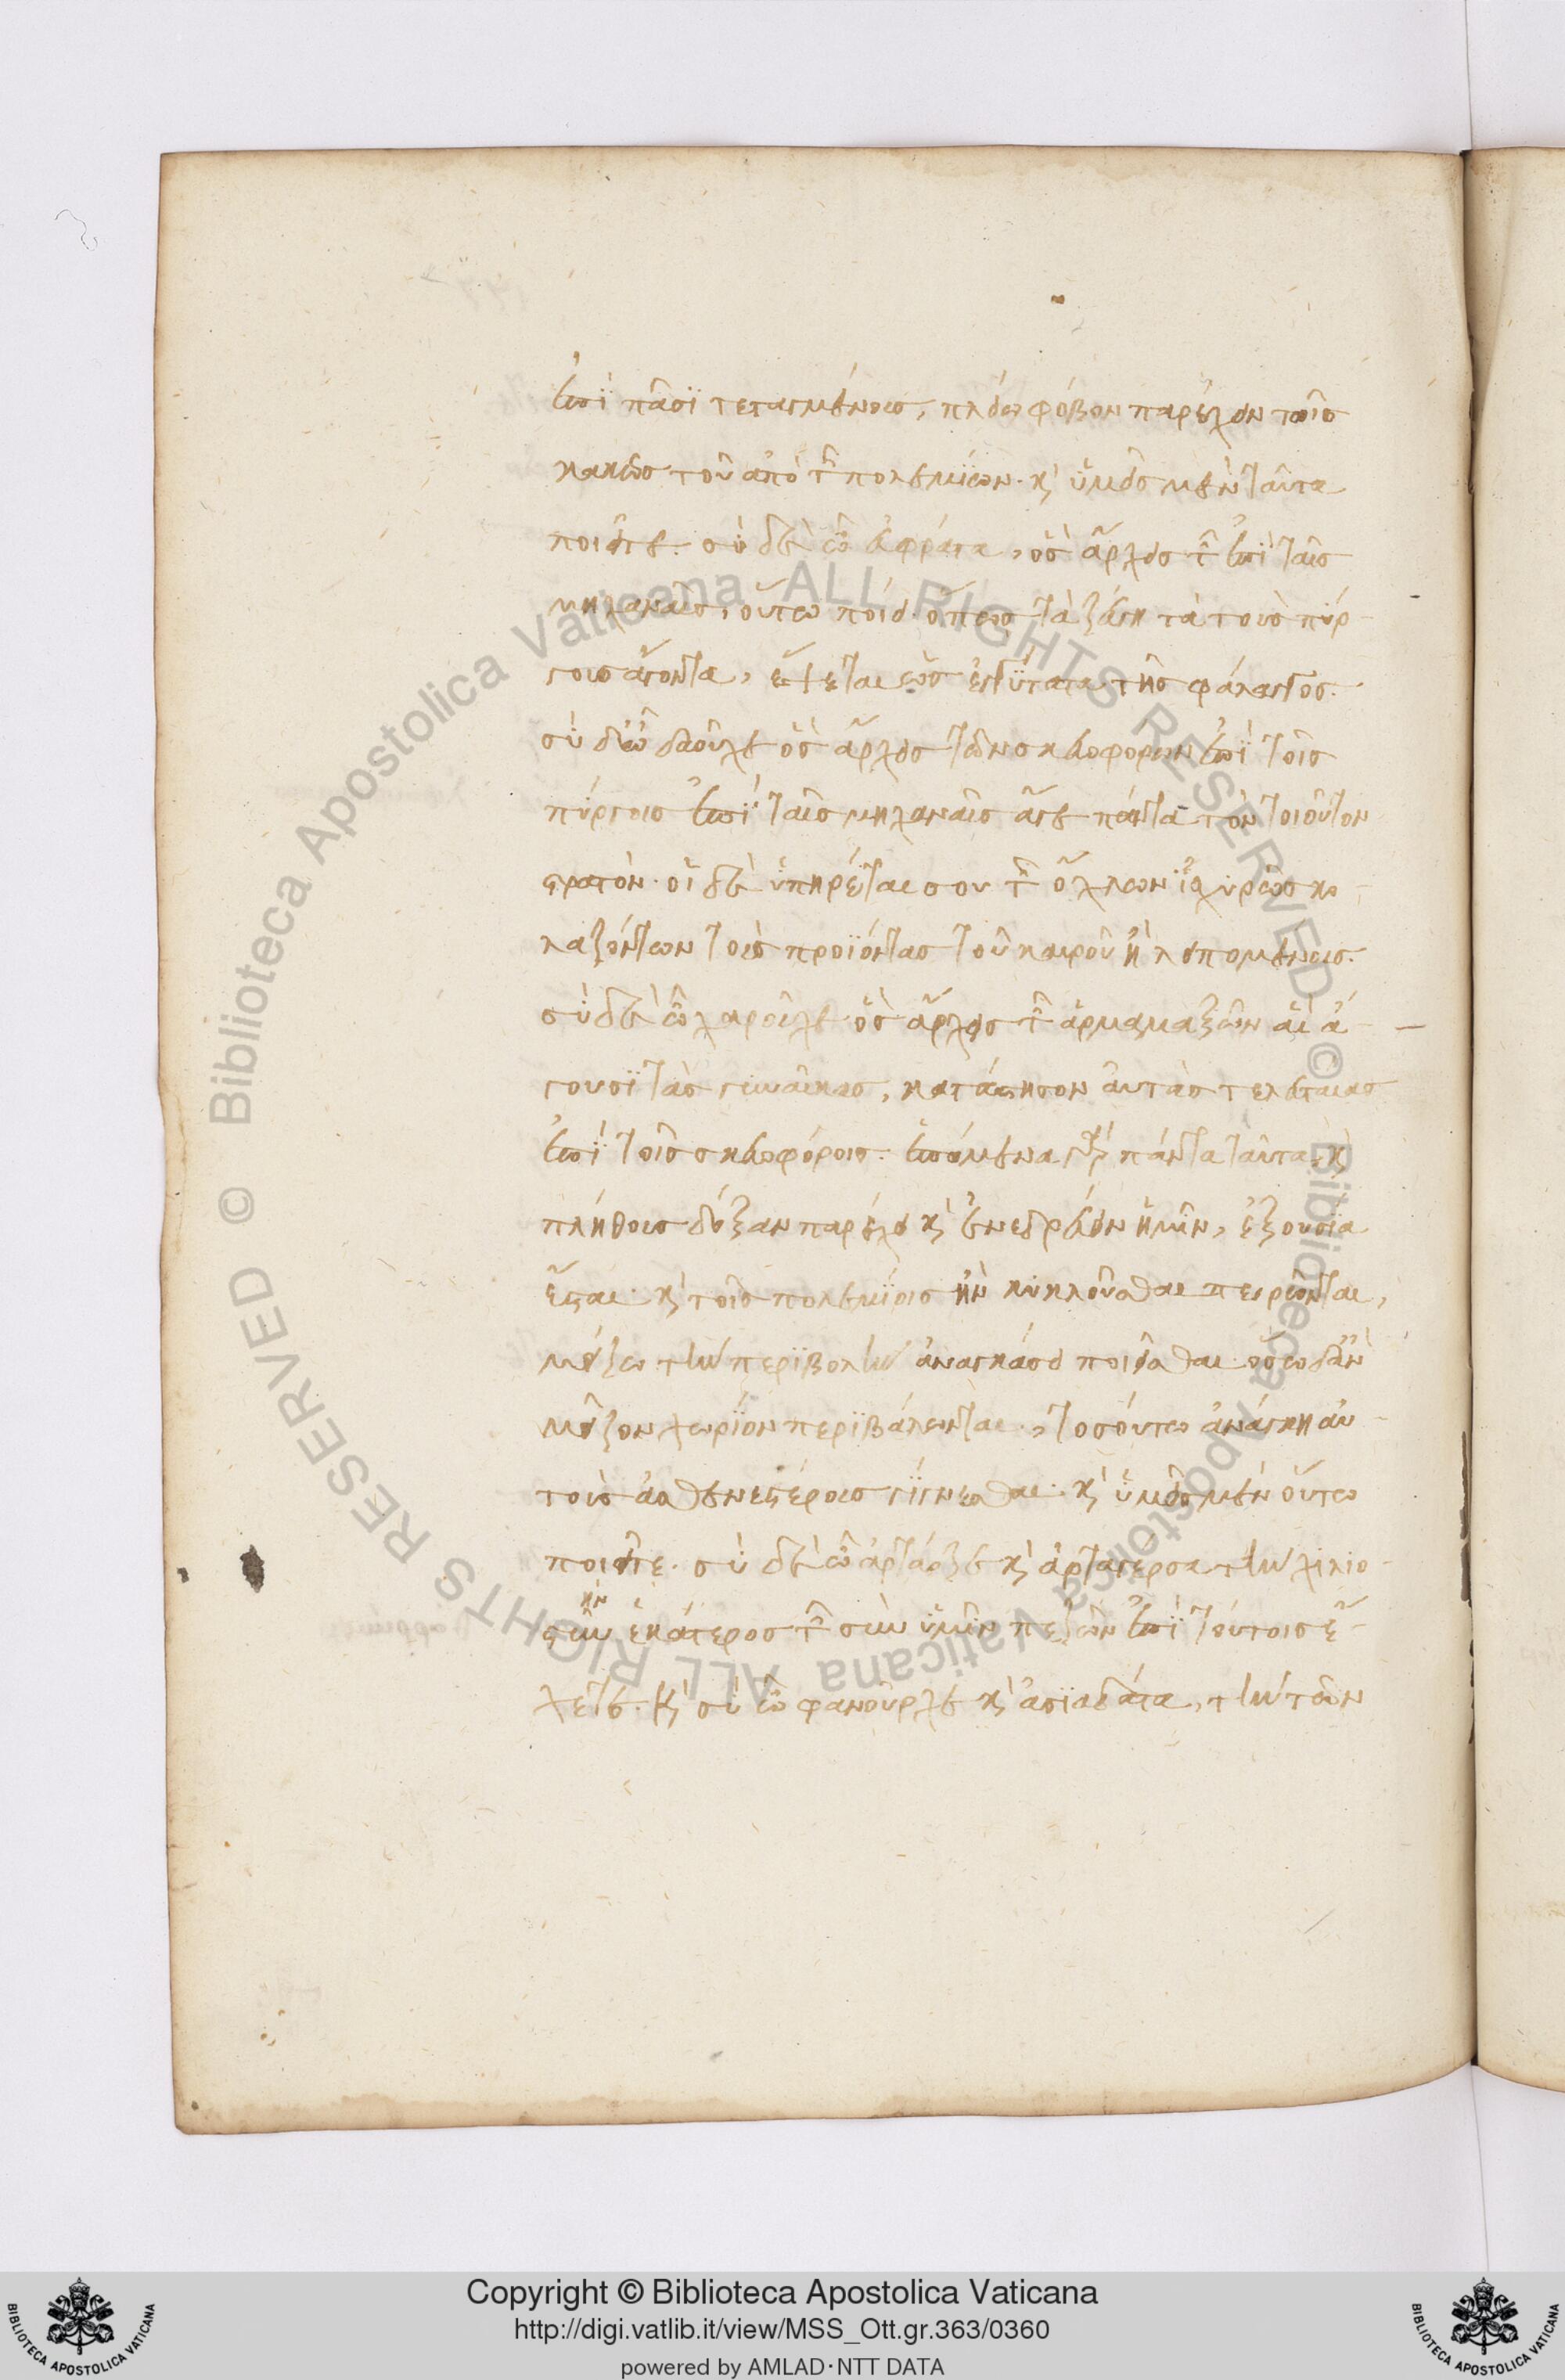 ἐπὶ πᾶσι τεταγμένους, πλείω φόβον παρέχειν τοῖς
κακοῖς τοῦ ἀπὸ τῶν πολεμίων. κ(αὶ) ὑμεῖς μὲν ταῦτα
ποιεῖτε. σὺ δὲ ὦ εὐφράτα, ὃς ἄρχεις τῶν ἐπὶ ταῖς
μηχαναῖς, οὕτω ποίει ὅπως τὰ ζεύγη τὰ τοὺς πύρ-
γους ἄγοντα, ἕψεται ὡς ἐγγύτατα τῆς φάλαγγος.
σὺ δ' ὦ δαοῦχε ὃς ἄρχεις τῶν σκευοφόρων ἐπὶ τοῖς
πύργοις ἐπὶ ταῖς μηχαναῖς ἄγε πάντα τὸν τοιοῦτον
στρατόν. οἱ δὲ ὑπηρέται σου τῶν ὄχλων ἰσχυρῶς κο-
λαζόντων τοὺς προϊόντας τοῦ καιροῦ ἢ λειπομένους.
σὺ δὲ ὦ χαροῦχε ὃς ἄρχεις τῶν ἁρμαμαξῶν αἳ ἄ-
γουσι τὰς γυναῖκας, κατάστησον αὐτὰς τελευταίας
ἐπὶ τοῖς σκευοφόροις. ἑπόμενα γὰρ πάντα ταῦτα, κ(αὶ)
πλήθους δόξαν παρέχει κ(αὶ) ἐνεδρεύειν ἡμῖν, ἐξουσία
ἔσται. κ(αὶ) τοῖς πολεμίοις ἢν κυκλοῦσθαι πειρῶνται,
μείζω τὴν περιβολὴν ἀναγκάσει ποιεῖσθαι. ὅσῳ δ' ἂν
μεῖζον χωρίον περιβάλωνται, τοσούτῳ ἀνάγκη αὐ-
τοὺς ἀσθενεστέρους γίγνεσθαι. κ(αὶ) ὑμεῖς μὲν οὕτω
ποιεῖτε. σὺ δὲ ὦ ἀρτάοζε κ(αὶ) ἀρταγέρσα τὴν χιλιο-
στὺν ἢν ἑκάτερος τῶν σὺν ὑμῖν πεζῶν ἐπὶ τούτοις ἔ-
χετε. κ(αὶ) σὺ ὦ φανοῦρχε κ(αὶ) ἀσιαδάτα, τὴν τῶν
Copyright © Biblioteca Apostolica Vaticana
http://digi.vatlib.it/view/MSS_Ott.gr.363/0360
powered by AMLAD·NTT DATA